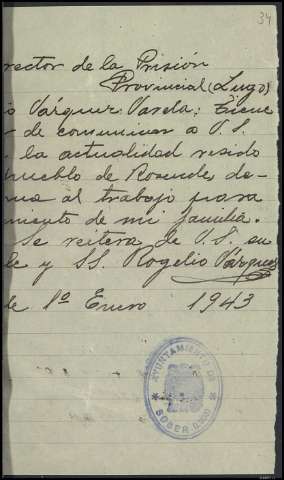 34
rector de la Prisión
Provincial (Lugo)
io Várquez Varela: Tiene
r de comunicar a V.S.
la actualidad resido
pueblo de Rosende de-
al trabajo para
miento de mi familia.
Se reitera de V.S. su
le y SS. Rogelio Várquez
de 1º Enero 1943
AYUNTAMIENTO DE
SOBER